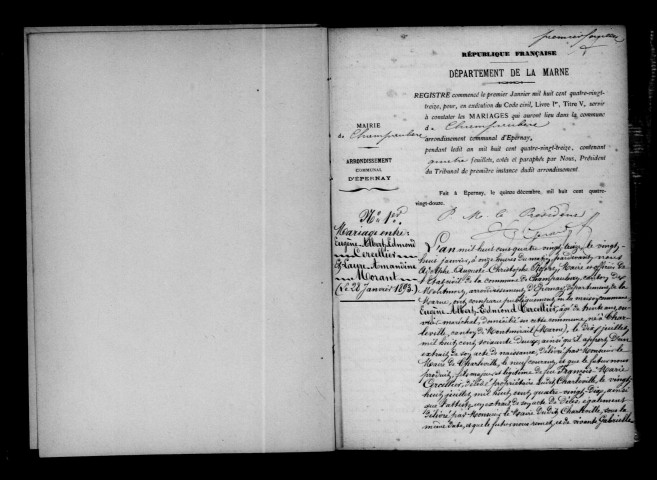 premier
RÉPUBLIQUE FRANÇAISE
DÉPARTEMENT DE LA MARNE
REGISTRE commencé le premier Janvier mil huit cent quatre-vingt-
treize, pour, en exécution du Code civil, Livre Ier, Titre V, servir
à constater les MARIAGES qui auront lieu dans la commune
de Champaubert
arrondissement communal d'Epernay,
pendant ledit an mil huit cent quatre-vingt-treize, contenant
quatre feuillets, cotés et paraphés par Nous, Président
du Tribunal de première instance dudit arrondissement
Fait à Epernay, le quinze décembre, mil huit cent quatre-
vingt-douze.
P. M. le Président
MAIRIE
de Champaubert
ARRONDISSEMENT
COMMUNAL
D'ÉPERNAY
No 1er
Mariage entre:
Eugène Albert Edmond
Cercellier
Et Laure Amandine
Morant
(Le 28 Janvier 1893.)
L'an mil huit cent quatre vingt treize, le vingt-
huit janvier, à onze heures du matin, pardevant nous
Joseph Auguste Christophe, Maire officier de
l'Etat civil de la commune de Champaubert, canton de
Montmort, arrondissement d'Epernay, département de la
Marne, ont comparu publiquement en la maison commune
Eugène Albert Edmond Cercellier, âgé de trente ans, ou-
vrier maréchal, domicilié en cette commune, né à Charle-
ville, canton de Montmirail (Marne), le dix juillet
mil huit cent soixante deux, ainsi qu'il appert d'un
extrait de son acte de naissance, délivré par Monsieur le
Maire de Charleville, le neuf courant, et que le futur nous
produit, fils majeur et légitime de feu François Marie
Cercellier, décédé propriétaire audit Charleville, le vingt
huit juillet, mil huit cent quatre-vingt-dix, ainsi
que l'atteste un extrait de son acte de décès, également
délivré par Monsieur le Maire dudit Charleville, sous la
même date, et que le futur nous remet, et de vivante Gabrielle